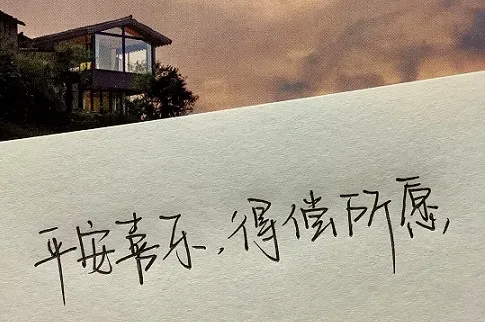 平安喜乐，得偿所愿，